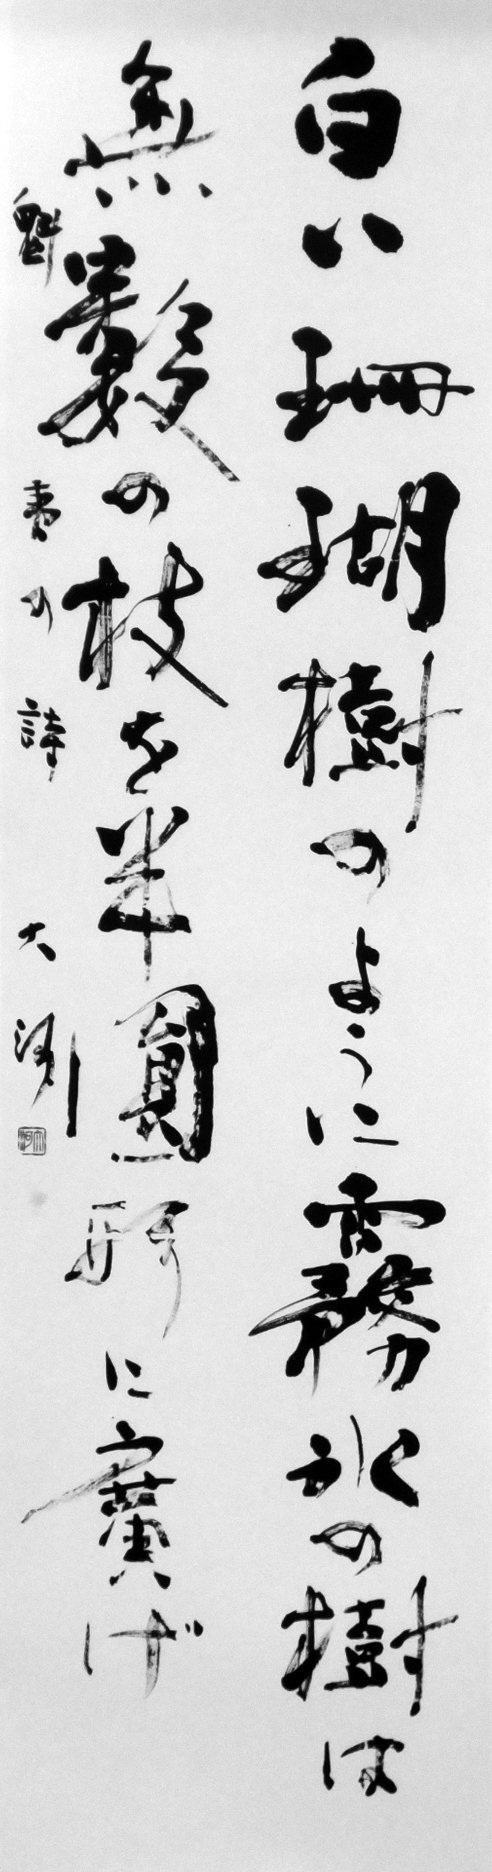 白い珊瑚樹のように霧氷の樹は
無數の枝を半圓形に廣げ
魁春の詩 大